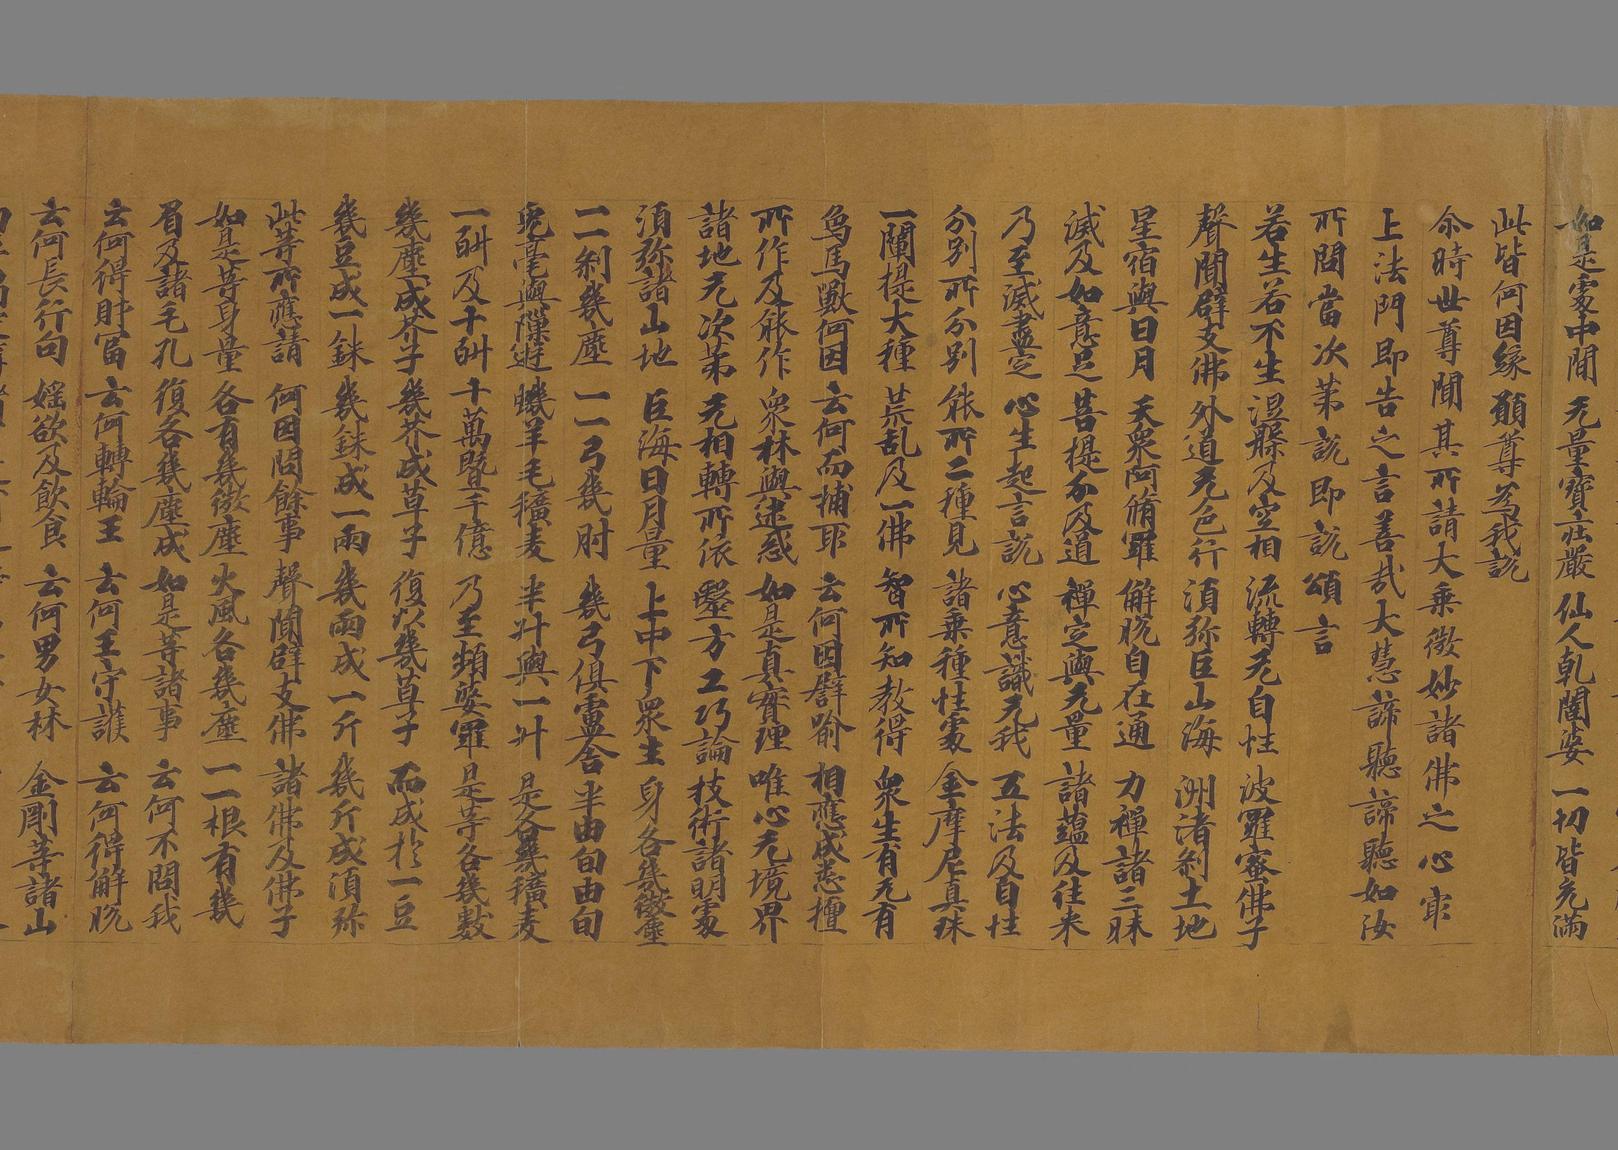 如是處中間 无量寶莊嚴 仙人乹闥婆 一切皆充滿
此皆何因緣 願尊為我說
尒時世尊聞其所請大乗微妙諸佛之心㝡
上法門即告之言善㢤大慧諦聽諦聽如汝
所問當次苐說即說頌言
若生若不生 涅槃及空相 流轉无自性 波羅蜜佛子
聲聞辟支佛 外道无色行 湏弥巨山海 洲渚剎土地
星宿與日月 天衆阿脩羅 解脫自在通 力禪諸三昧
滅及如意足 菩提分及道 禪定與无量 諸蘊及往来
乃至滅盡定 心生起言說 心意識无我 五法及自性
分別所分別 能所二種見 諸乗種性處 金摩尼真珠
一闡提大種 荒乱及一佛 智所知教得 衆生有无有
鳥馬獸何因 云何而捕取 云何因譬喻 相應成悉檀
所作及能作 衆林與迷惑 如是真實理 唯心无境界
諸地无次苐 无相轉所依 醫方工巧論 技術諸明處
湏弥諸山地 巨海日月量 上中下衆生 身各幾微塵
一一剎幾塵 一一弓幾肘 幾弓俱盧舍 半由旬由旬
兎毫與隙遊 蟣羊毛穬麦 半升與一升 是各幾穬麦
一斛及十斛 十萬暨千億 乃至頻婆羅 是等各幾數
幾塵成芥子 幾芥成草子 復以幾草子 而成於一豆
幾豆成一銖 幾銖成一兩 幾兩成一斤 幾斤成湏弥
此等所應請 何因問餘事 聲聞辟支佛 諸佛及佛子
如是等身量 各有幾微塵 火風各幾塵 一一根有幾
眉及諸毛孔 復各幾塵成 如是等諸事 云何不問我
云何得財富 云何轉輪王 云何王守護 云何得解脫
云何長行句 婬欲及飲食 云何男女林 金剛等諸山